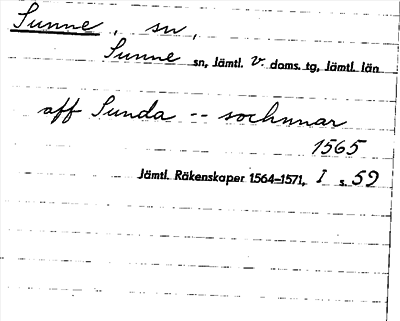 Sunne, sn,
Sunne sn, Jämtl. v. doms. tg, Jämtl. län
aff Sunda -- sochnnar
1565
Jämtl. Räkenskaper 1564-1571, I s. 59